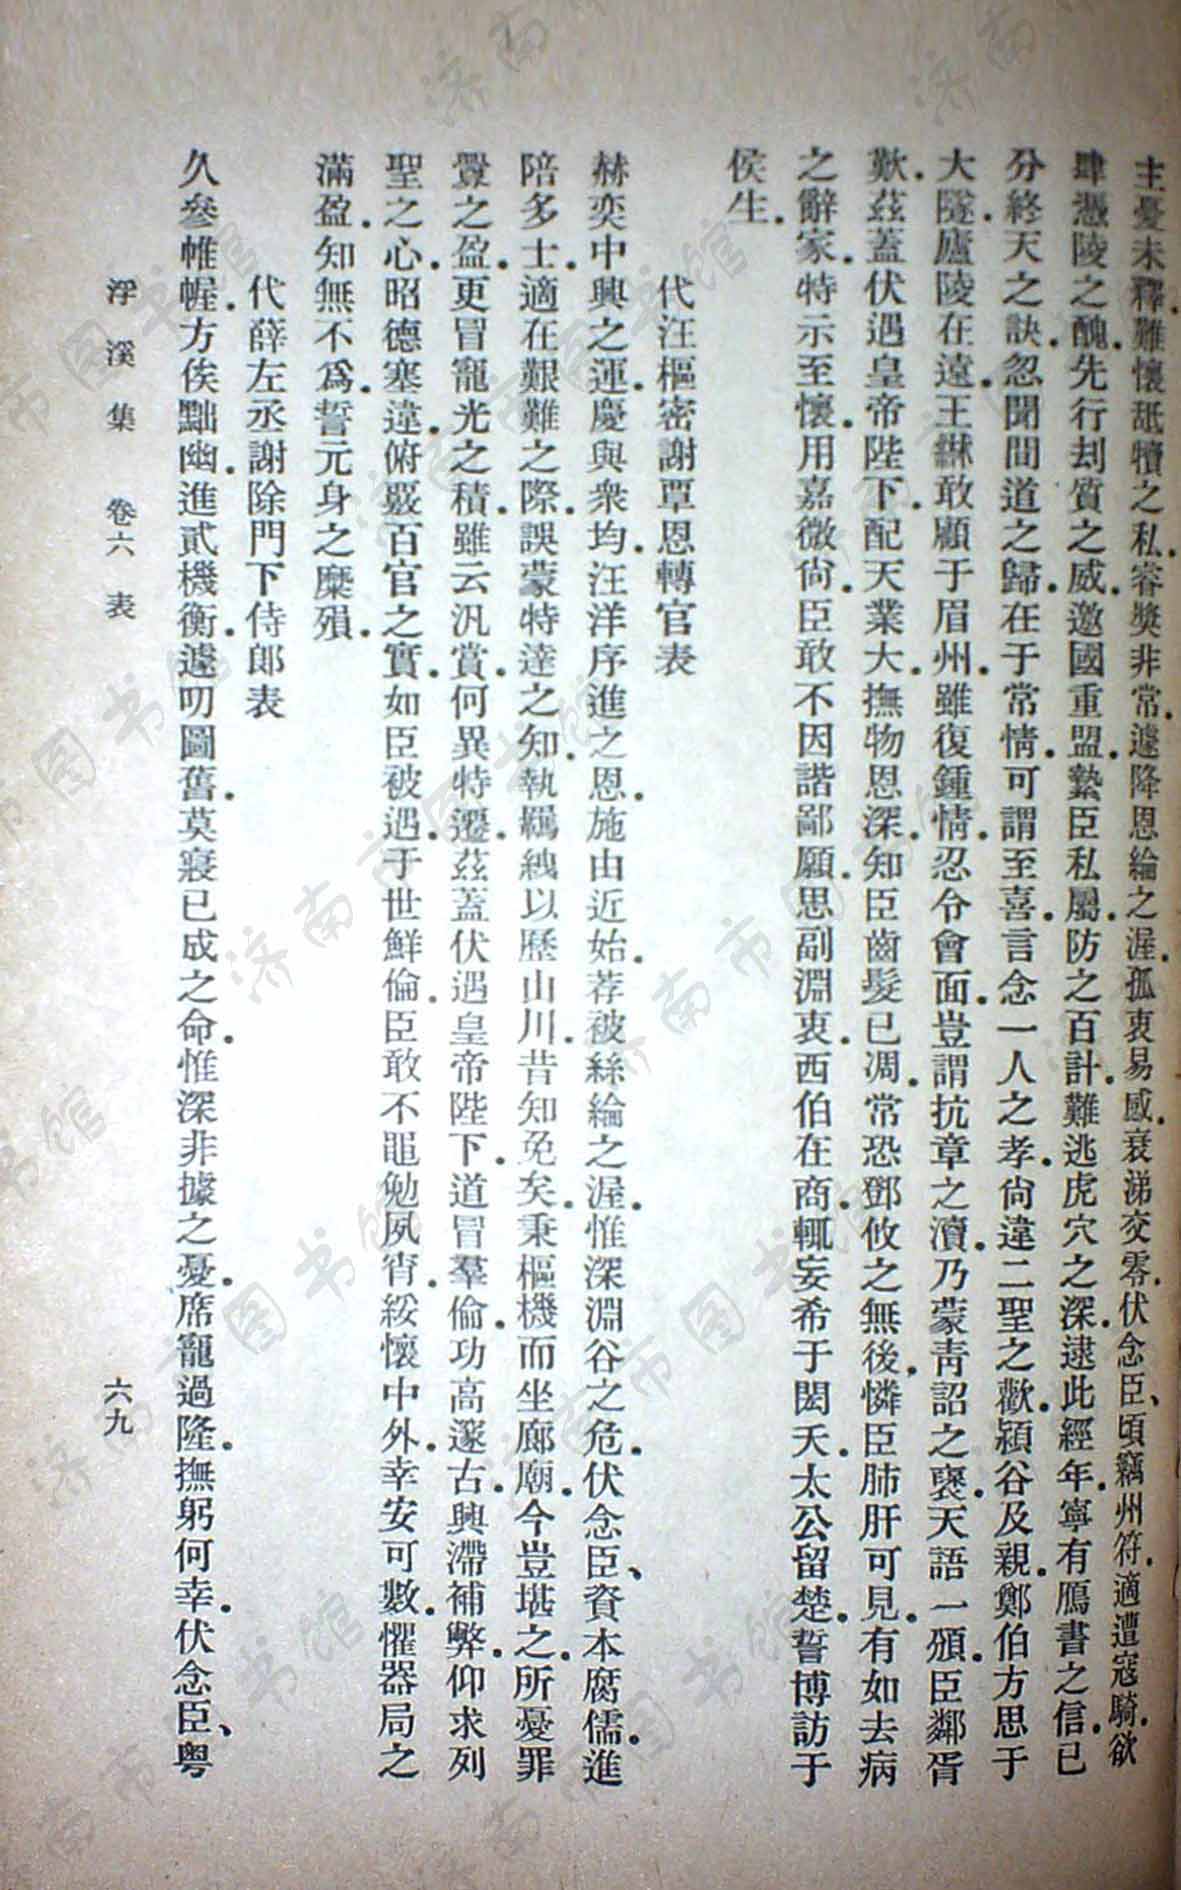 主憂未釋.難懷舐犢之私.睿獎非常.遽降恩綸之渥.孤衷易感.衰涕交零.伏念臣、頃竊州符.適遭寇騎.欲
肆憑陵之醜.先行刦質之威.邀國重盟.縶臣私屬.防之百計.難逃虎穴之深.逮此經年.寧有鴈書之信.已
分終天之訣.忽聞間道之歸.在于常情.可謂至喜.言念一人之孝.尙違二聖之歡.潁谷及親.鄭伯方思于
大隧.廬陵在遠.王綝敢顧于眉州.雖復鍾情.忍令會面.豈謂抗章之瀆.乃蒙靑詔之襃.天語一頒.臣鄰胥
歎.茲蓋伏遇皇帝陛下.配天業大.撫物恩深.知臣齒髮已凋.常恐鄧攸之無後.憐臣肺肝可見.有如去病
之辭家.特示至懷.用嘉微尙.臣敢不因諧鄙願.思副淵衷.西伯在商.輒妄希于閎夭.太公留楚.誓博訪于
侯生.
代汪樞密謝覃恩轉官表
赫奕中興之運.慶與衆均.汪洋序進之恩.施由近始.荐被絲綸之渥.惟深淵谷之危.伏念臣、資本腐儒.進
陪多士.適在艱難之際.誤蒙特達之知.執羈絏以歷山川.昔知免矣.秉樞機而坐廊廟.今豈堪之.所憂罪
釁之盈.更冒寵光之積.雖云汎賞.何異特遷.茲蓋伏遇皇帝陛下.道冒羣倫.功高邃古.興滯補弊.仰求列
聖之心.昭德塞違.俯覈百官之實.如臣被遇.于世鮮倫.臣敢不黽勉夙宵.綏懷中外.幸安可數.懼器局之
滿盈.知無不爲.誓元身之糜殞.
代薛左丞謝除門下侍郎表
久參帷幄.方俟黜幽.進貳機衡.遽叨圖舊.莫寢已成之命.惟深非據之憂.席寵過隆.撫躬何幸.伏念臣、粤
浮溪集 卷六 表 六九
济南市图书馆